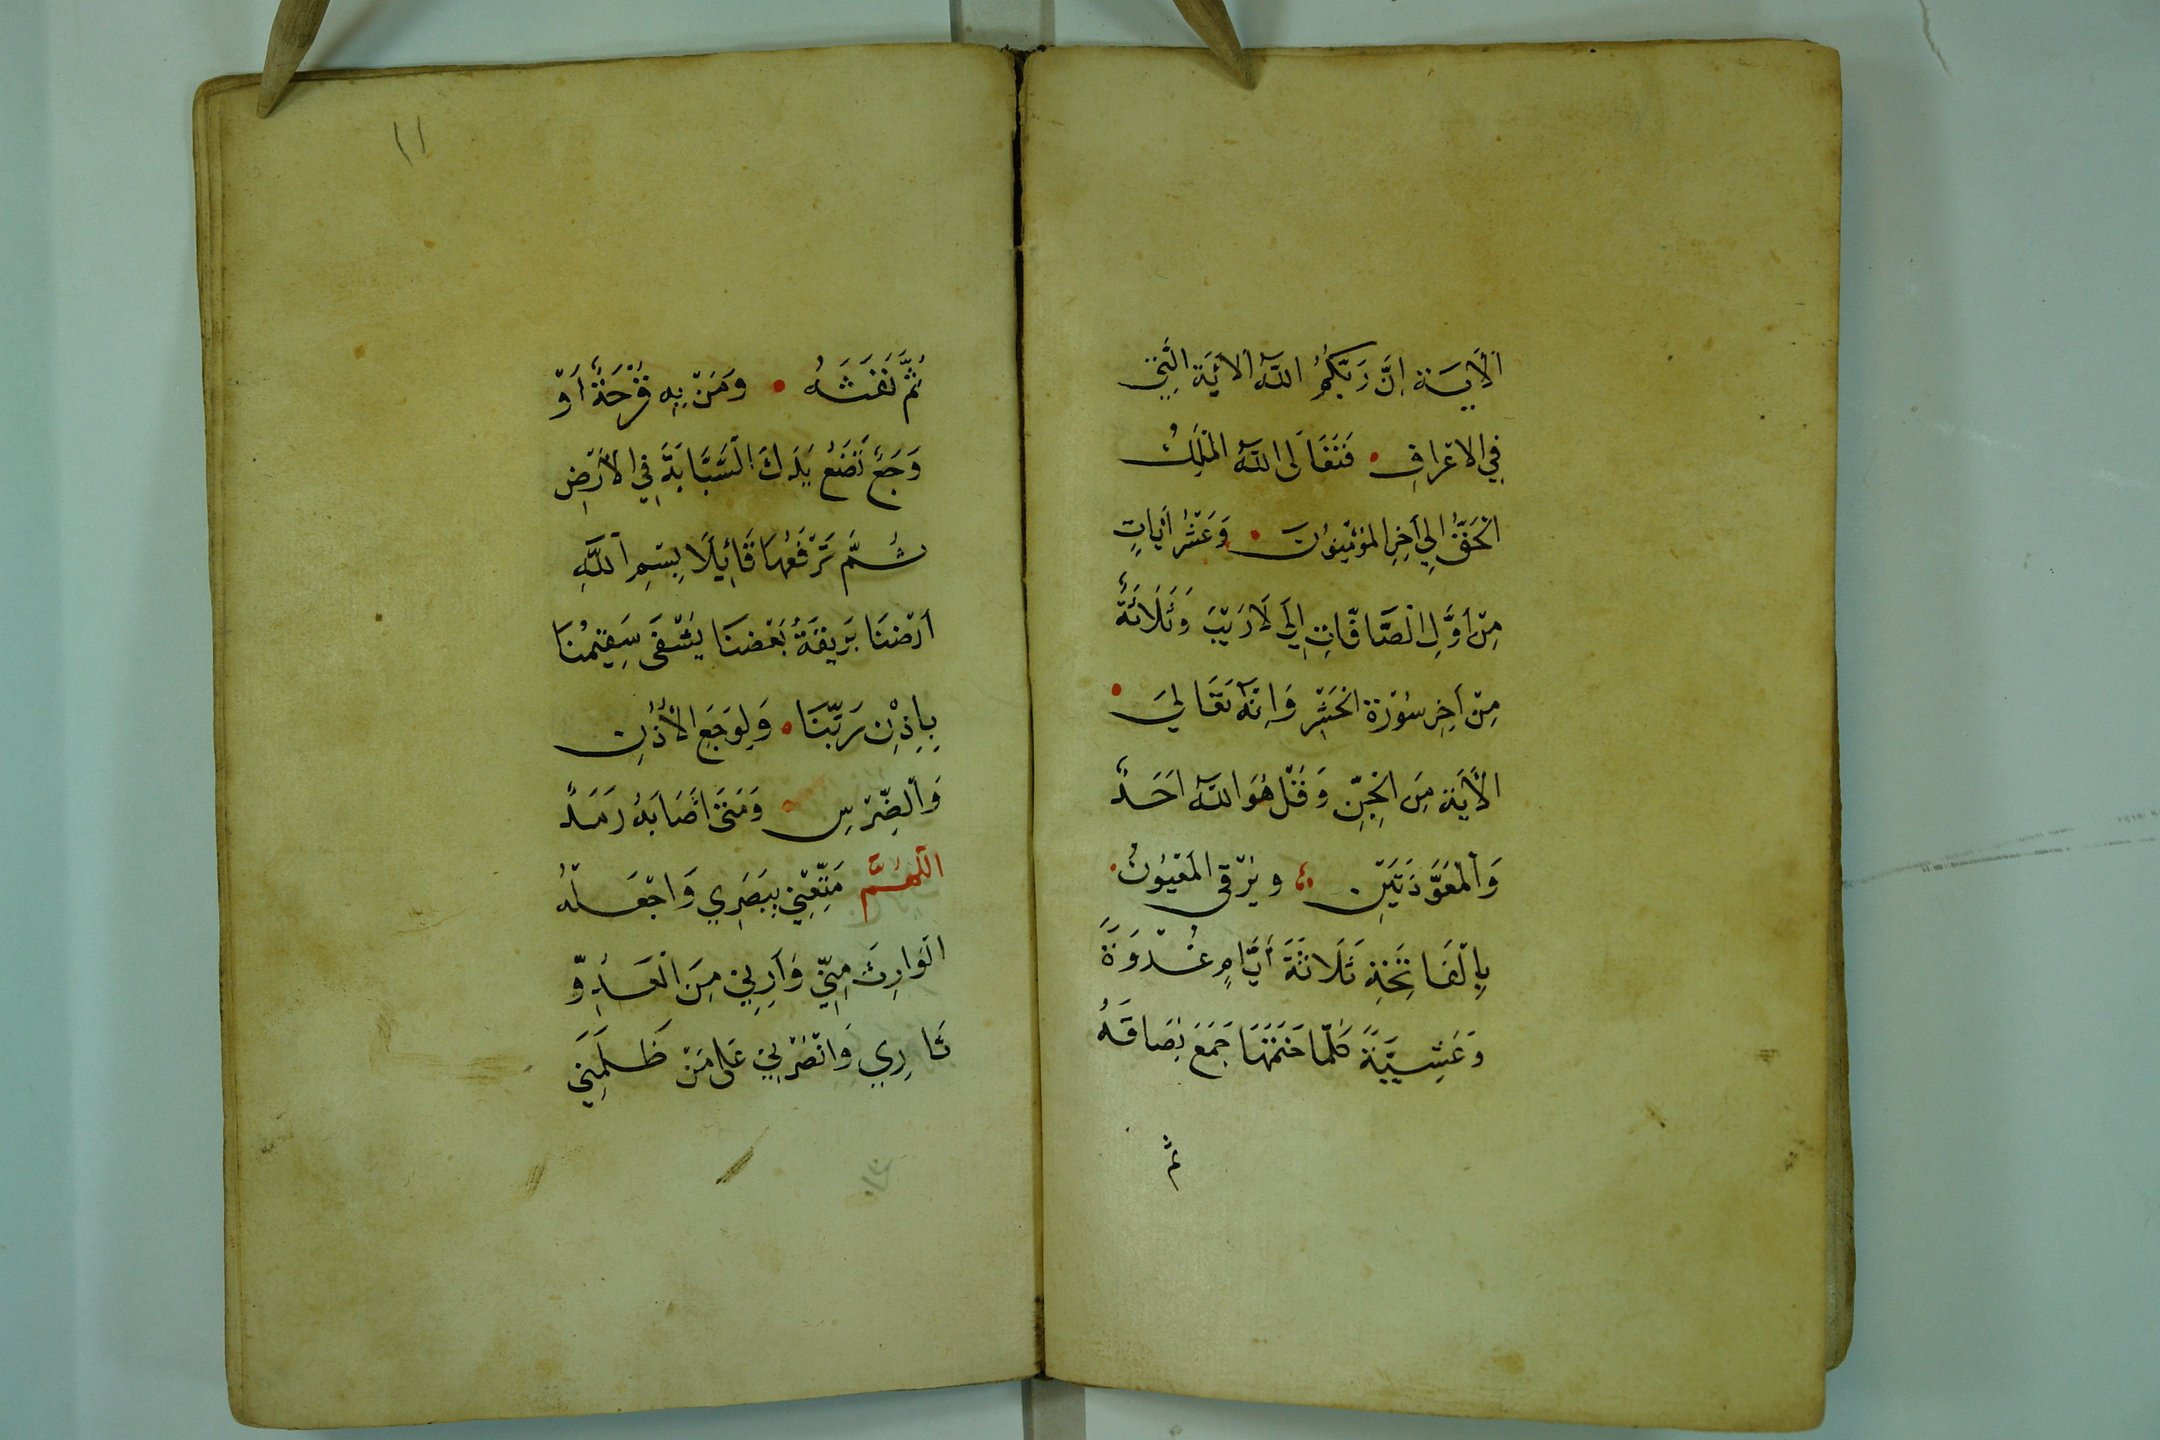 اَلْآيَة اِنَّ رَبَّكُمُ اللّٰهُ الْاٰيَة الَّتِي
فِي الْاَعْرَافِ • فَتَعَالَى اللّٰهُ الْمَلِكُ
الْحَقُّ اِلَى اٰخِرِ الْمُؤْمِنُونَ • وَعَشْرُ اٰيَاتٍ
مِنْ اَوَّلِ الصَّافَّاتِ اِلَى لَازِبٍ وَثَلَاثَةٌ
مِنْ اٰخِرِ سُوْرَةِ الْحَشْرِ وَاَنَّهُ تَعَالَى •
الْاٰيَة مِنَ الْجِنِّ وَقُلْ هُوَ اللّٰهُ اَحَدٌ
وَالْمُعَوَّذَتَيْنِ • وَيُرْقَى الْمَعْيُونُ •
بِالْفَاتِحَةِ ثَلَاثَةَ اَيَّامٍ غُدْوَةً
وَعَشِيَّةً كُلَّمَا خَتَمَهَا جَمَعَ بُصَاقَهُ
ثم
١١
ثُمَّ نَفَثَهُ • وَمَنْ بِهِ قُرْحَةٌ اَوْ
وَجَعٌ تَضَعُ يَدَكَ السَّبَّابَةَ فِي الْاَرْضِ
ثُمَّ تَرْفَعُهَا قَائِلًا بِسْمِ اللّٰهِ
اَرْضُنَا بَرِيقَةُ بَعْضِنَا يُشْفَى سَقِيمُنَا
بِاِذْنِ رَبِّنَا • وَلِوَجَعِ الْاُذُنِ
وَالضِّرْسِ • وَمَتَى اَصَابَهُ رَمَدٌ
اَللّٰهُمَّ مَتِّعْنِي بِبَصَرِي وَاجْعَلْهُ
الْوَارِثَ مِنِّي وَاَرِنِي مِنَ الْعَدُوِّ
ثَارِي وَانْصُرْنِي عَلَى مَنْ ظَلَمَنِي